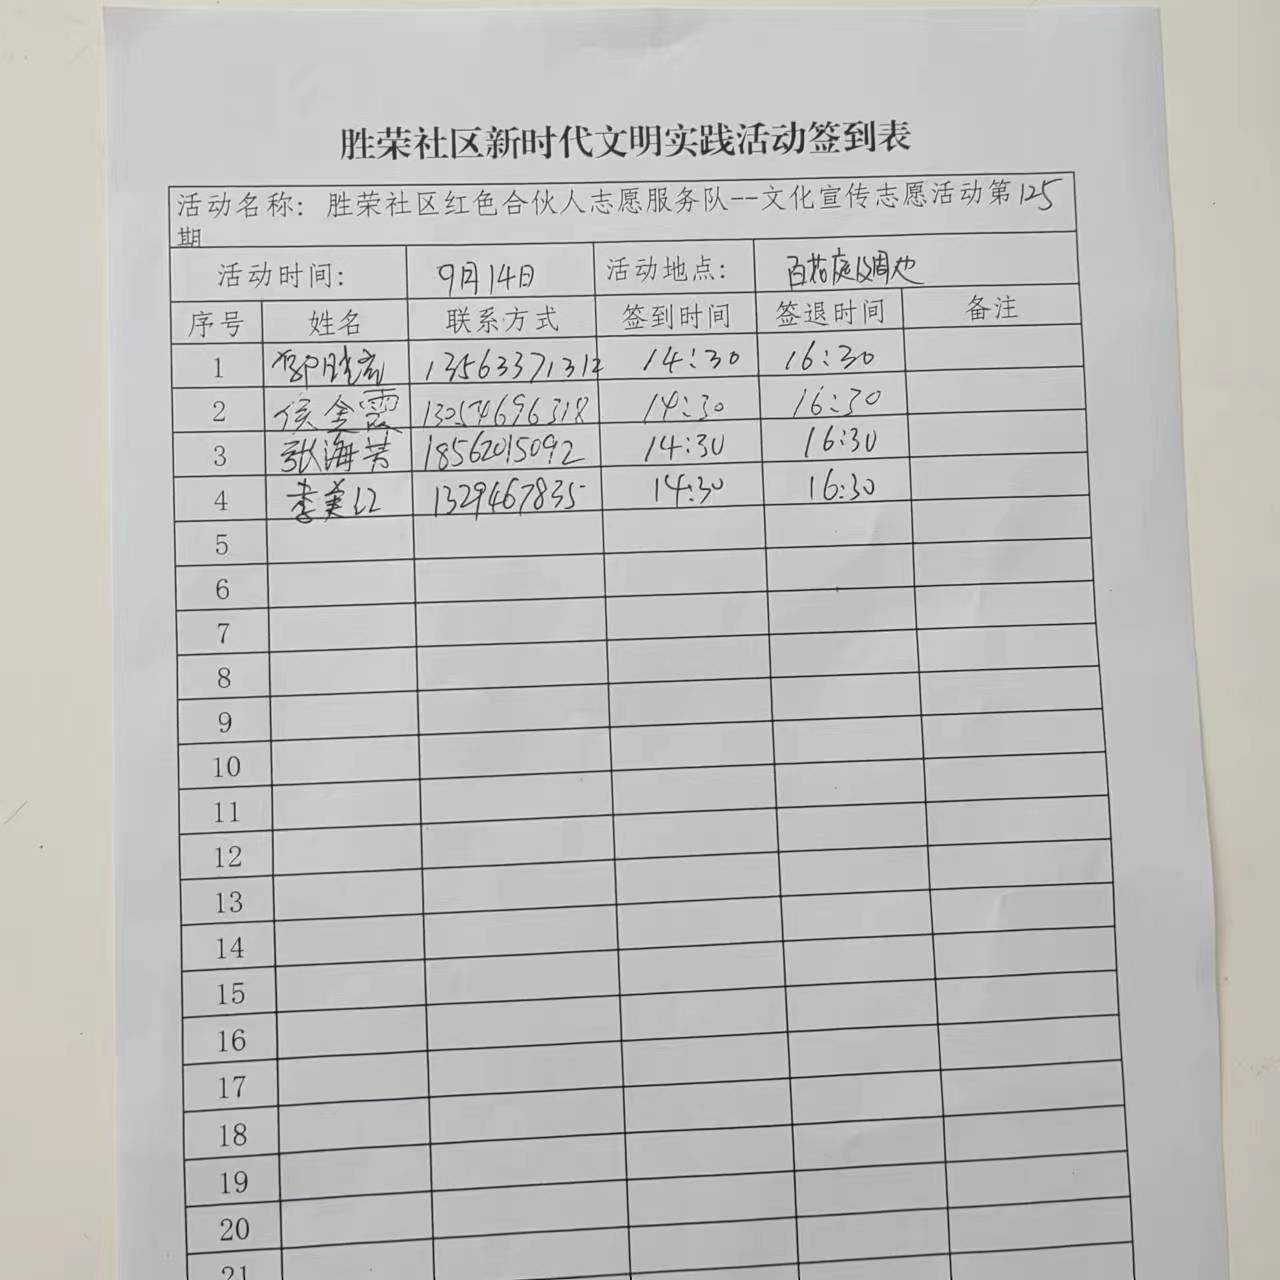 胜荣社区新时代文明实践活动签到表
活动名称：胜荣社区红色合伙人志愿服务队--文化宣传志愿活动第125
期
活动时间： 9月14日 活动地点： 百花庭及周边
序号 姓名 联系方式 签到时间 签退时间 备注
1 13563371312 14:30 16:30
2 侯金霞 13054696318 14:30 16:30
3 张海芳 18562015092 14:30 16:30
4 李美红 1329467835 14:30 16:30
5
6
7
8
9
10
11
12
13
14
15
16
17
18
19
20
21